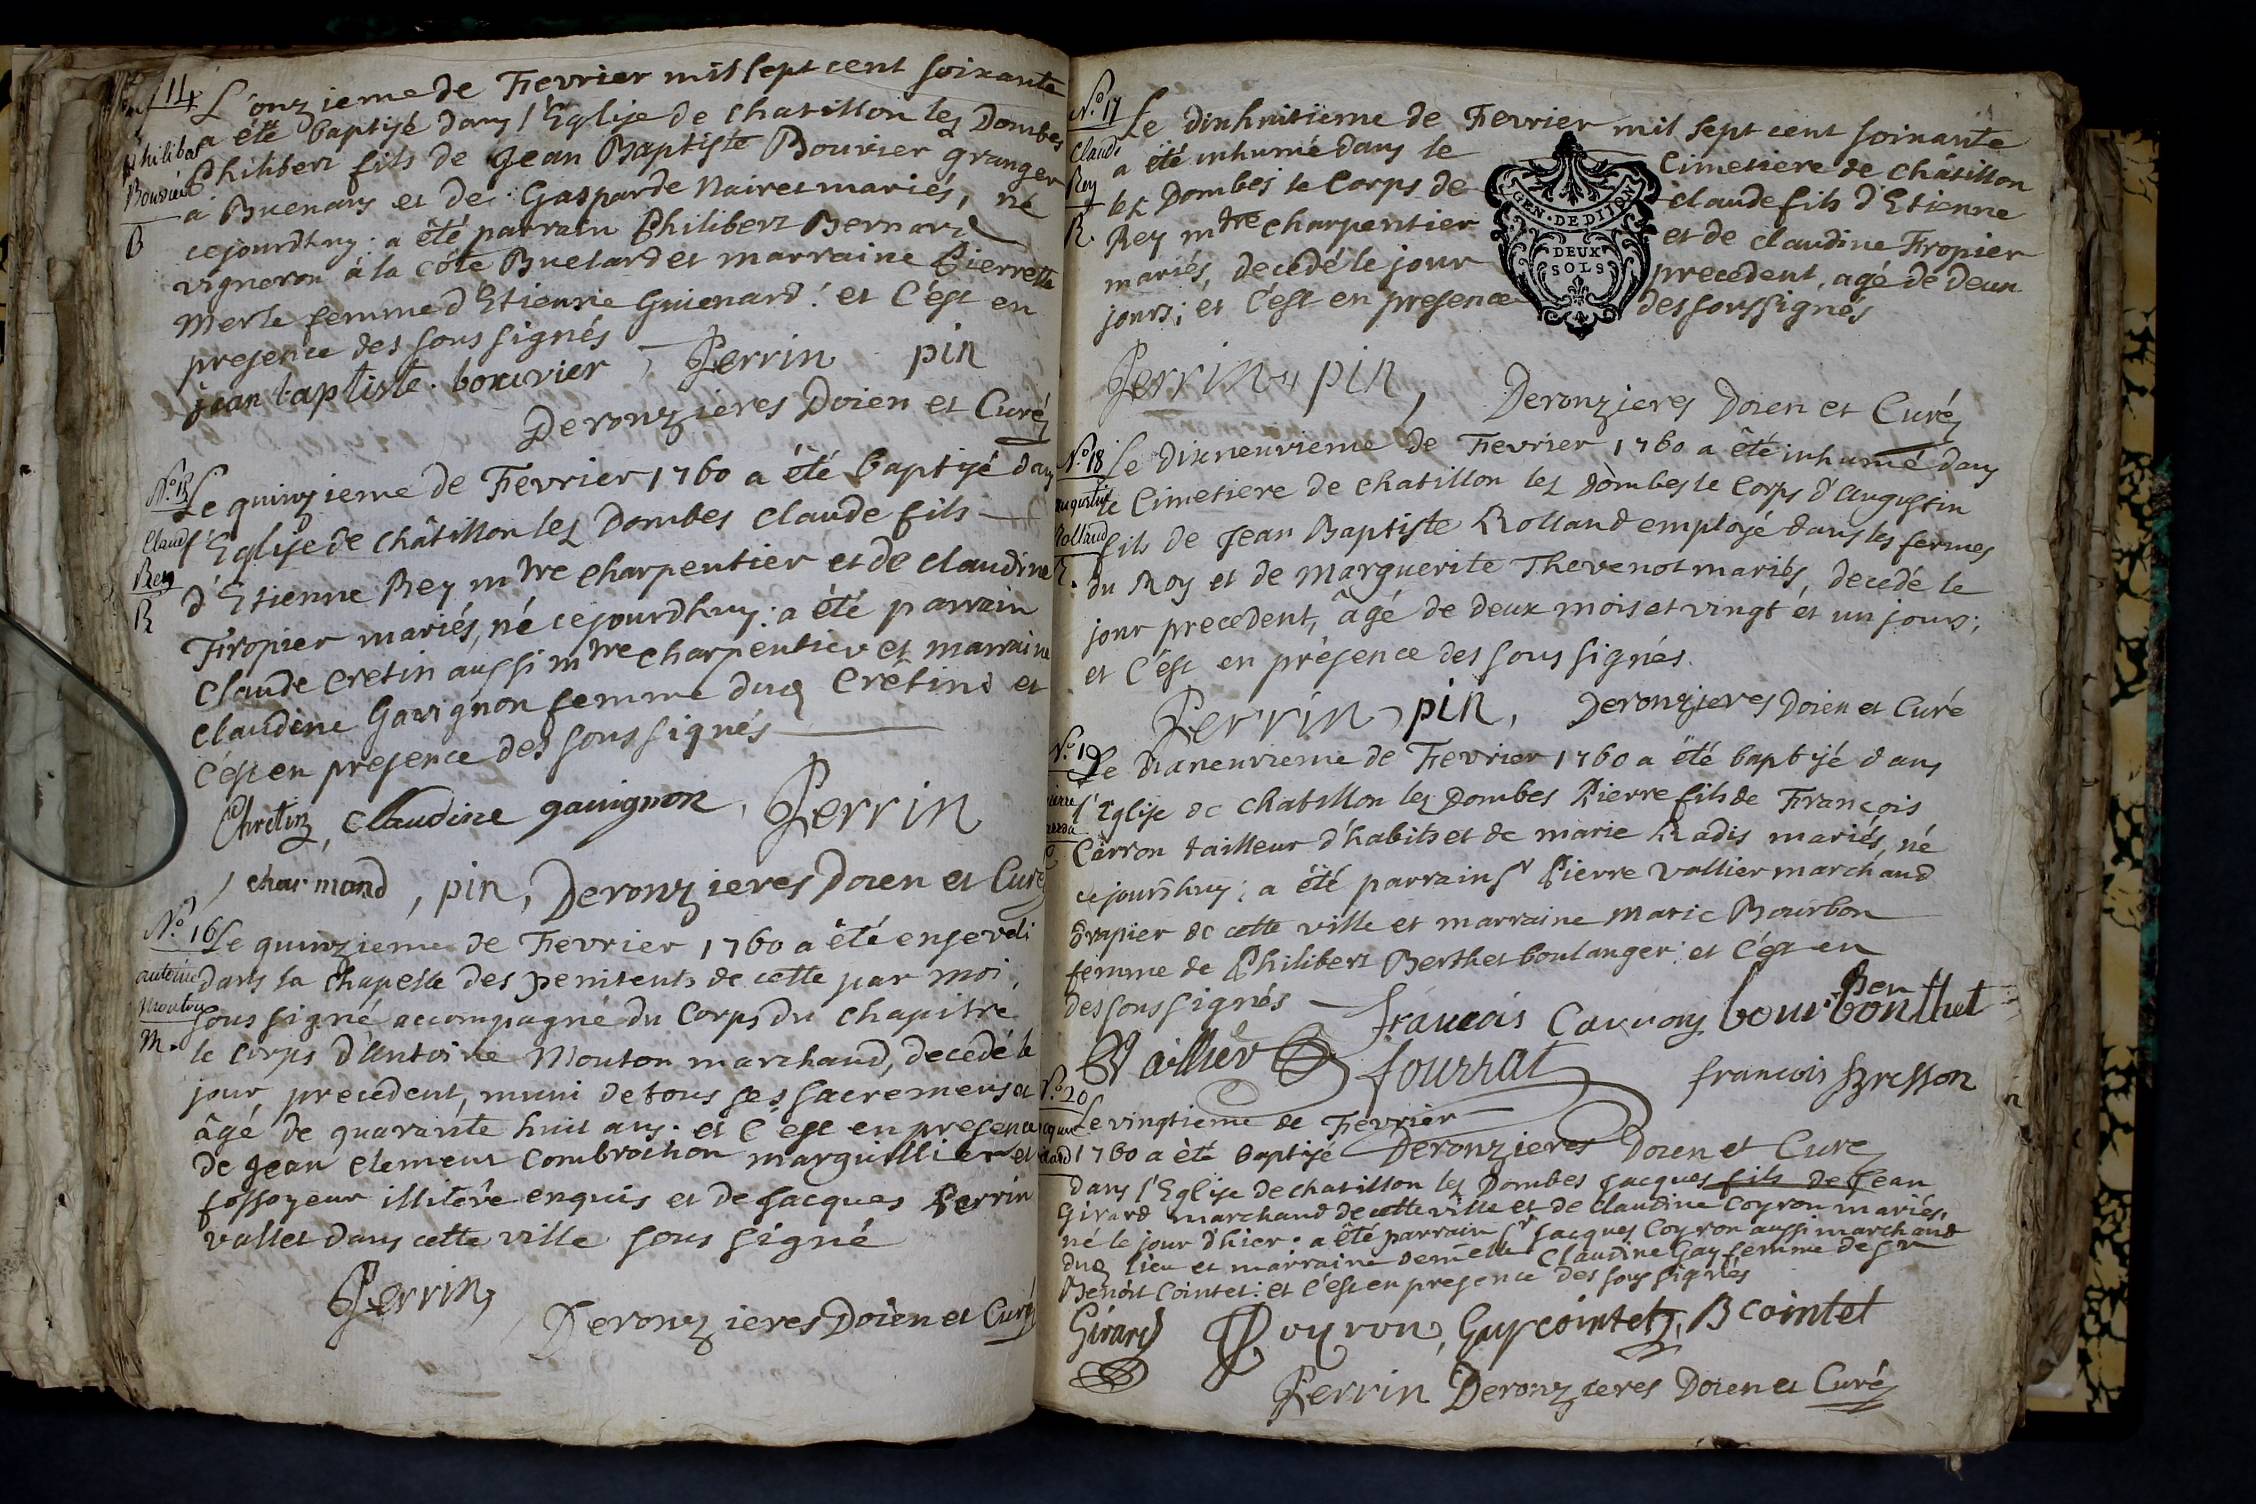 N.o 14
L'onzieme de Fevrier mil sept cent soixante
a été baptisé dans l'Eglise de chatillon les Dombes
Philibert fils de Jean Baptiste Bouvier granger
Bouvier
a Buenans et de Gasparde Nairet mariés, né
B
cejourdhuy : a été parrain Philibert Bernard
vigneron à la côte Buelard et marraine Pierrette
Merle femme d'Etienne Guienard : et C'est en
presence des soussignés
jean baptiste bouvier, Perrin pin
Deronzieres Doien et Curé
N.o 15
Le quinzieme de Fevrier 1760 a été baptisé dans
Claude
l'Eglise de châtillon les Dombes claude fils
Rey
d'Etienne Rey mtre charpentier et de claudine
R
Fropier mariés, né cejourdhuy : a été parrain
Claude Cretin aussi mtre charpentier et marraine
claudine Gavignon femme dud Cretin : et
C'est en presence des soussignés
Chretin, Claudine gauignon, Perrin
, charmond, pin, Deronzieres Doien et Curé
N.o 16
Le quinzieme de Fevrier 1760 a été enseveli
antoine
dans la chapelle des penitents de cette par moi,
Mouton
sous signé accompagné du Corps du chapitre
M.
le corps d'Antoine Mouton marchand, decedé le
jour precedent, muni de tous ses sacremens et
âgé de quarante huit ans. et C'est en presence
de Jean clement Combrochon marguillier et
fossoyeur illitere enquis et de Jacques Perrin
vallet dans cette ville sous signé
Perrin,
Deronzieres Doien et Curé
N.o 17
Le dixhuitieme de Fevrier mil sept cent soixante
Claude
a été inhumé dans le Cimetiere de châtillon
Rey
les Dombes le Corps de claude fils d'Etienne
R
Rey mtre charpentier et de claudine Fropier
mariés, decedé le jour precedent, agé de deux
jours; et C'est en presence des soussignés
GEN. DE DIJON
DEUX
SOLS
Perrin, pin, Deronzieres Doien et Curé
N.o 18
Le dixneuvieme de Fevrier 1760 a été inhumé dans
augustin
le Cimetiere de chatillon les Dombes le Corps d'augustin
Rolland
fils de Jean Baptiste Rolland employé dans les fermes
du Roy et de Marguerite Thevenot mariés, decedé le
jour precedent, âgé de deux mois et vingt et un jours;
et C'est en présence des sous signés.
Perrin, pin, Deronzieres Doien et Curé
Le dixneuvieme de Fevrier 1760 a été baptisé dans
l'Eglise de chatillon les Dombes Pierre fils de François
Carron tailleur d'habits et de marie Radis mariés, né
cejourdhuy; a été parrain sr Pierre Vallier marchand
Drapier de cette ville et marraine Marie Bourbon
femme de Philibert Berthet boulanger : et C'est en
des soussignés francois Carron bourbon Berthet
Vallier fourrat francois Bresson
N.o 20
Le vingtieme de Fevrier
1760 a été baptisé Deronzieres Doien et Curé
dans l'Eglise de chatillon les Dombes Jacques fils de Jean
Girard marchand de cette ville et de claudine Coyron mariés,
né le jour d'hier : a été parrain sr Jacques Coyron aussi marchand
dud lieu et marraine Demelle Claudine Gay femme de sr
Benoit Cointet : et C'est en presence des soussignés
Girard Coyron, Gay cointet, B cointet
Perrin Deronzieres Doien et Curé